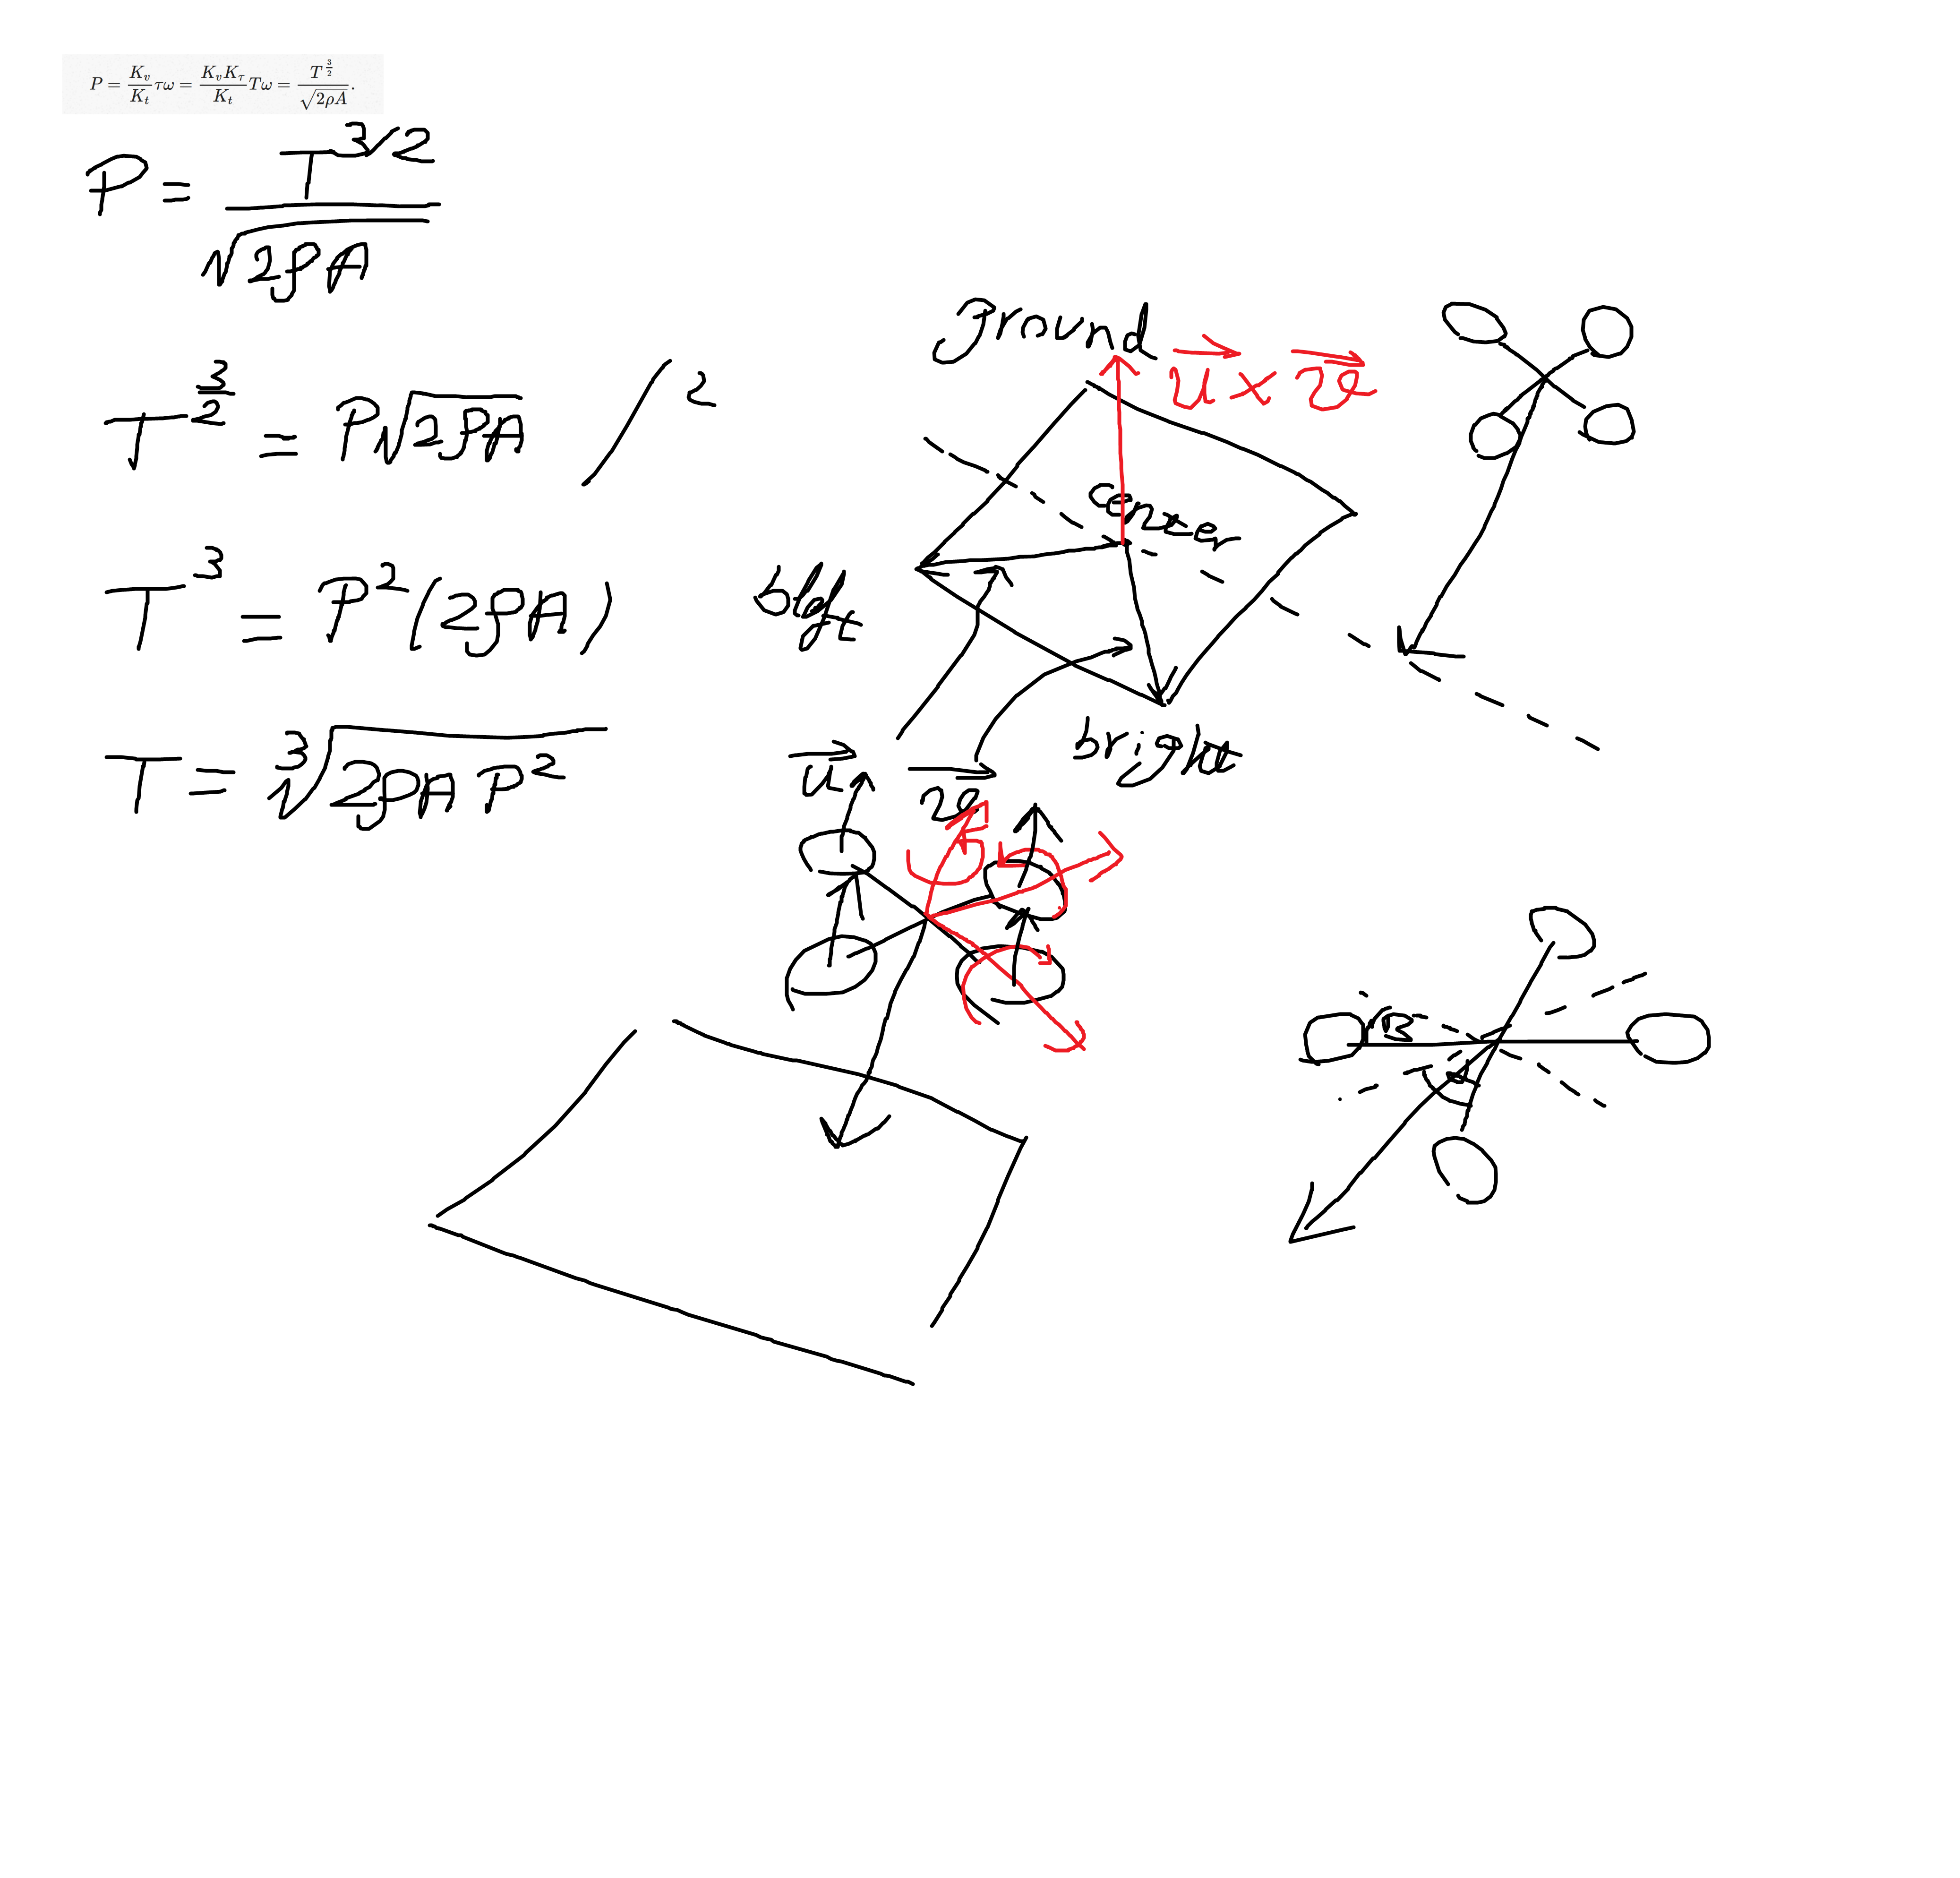 P = \frac{K_v}{K_t} τω = \frac{K_v K_τ}{K_t} Tω = \frac{T^{\frac{3}{2}}}{\sqrt{2ρA}}.
P = \frac{T^{3/2}}{\sqrt{2ρA}}
T^{\frac{3}{2}} = P\sqrt{2ρA} /^2
T^3 = P^2(2ρA)
T = \sqrt[3]{2ρA P^2}
Ground
\vec{u} × \vec{v}
center
left
right
\vec{u}
\vec{v}